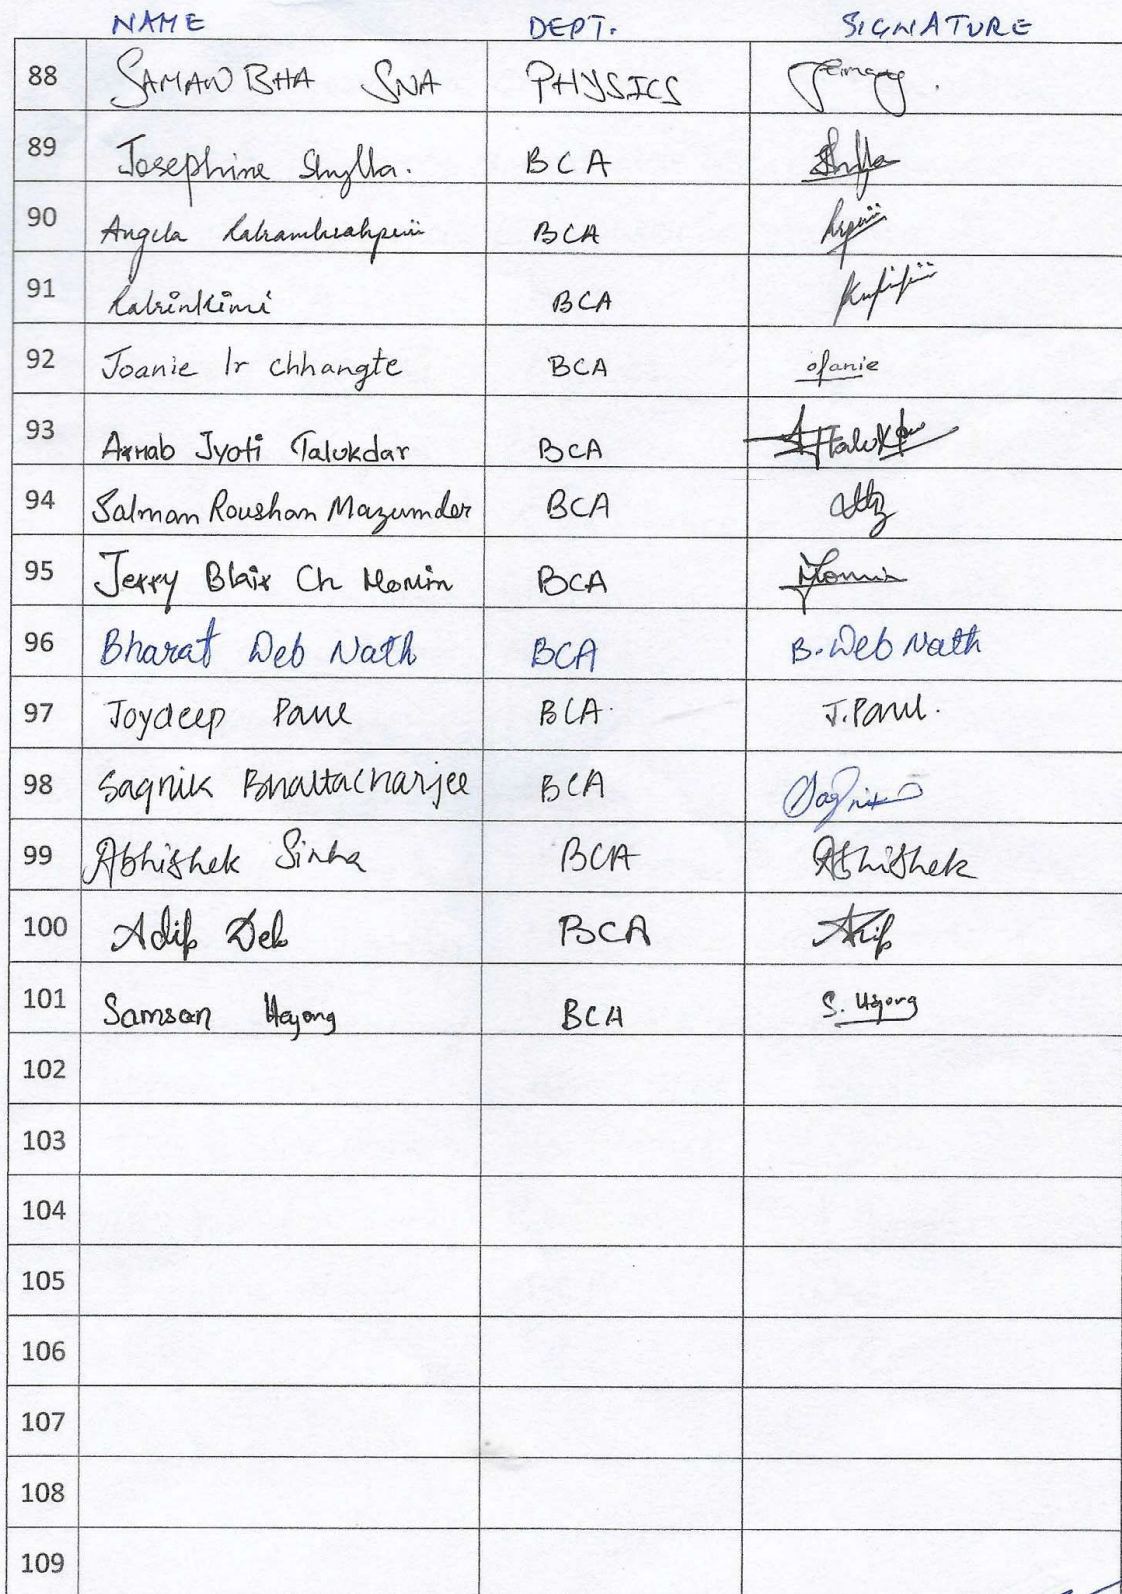 NAME DEPT. SIGNATURE
88 SAMAW BHA SNA PHYSICS
89 Josephine Shylla. BCA Shylla
90 Angela BCA
91 Lalrinkimi BCA
92 Joanie lr chhangte BCA
93 Arnab Jyoti Talukdar BCA
94 Salman Roushan Mazumder BCA
95 Jerry Blair Ch Momin BCA Momin
96 Bharat Deb Nath BCA B. Deb Nath
97 Joydeep Paul BCA. J. Paul.
98 Sagnik Bhattacharjee BCA Sagnik
99 Abhishek Sinha BCA Abhishek
100 Adip Deb BCA Adip
101 Samson Hajong BCA S. Hajong
102
103
104
105
106
107
108
109